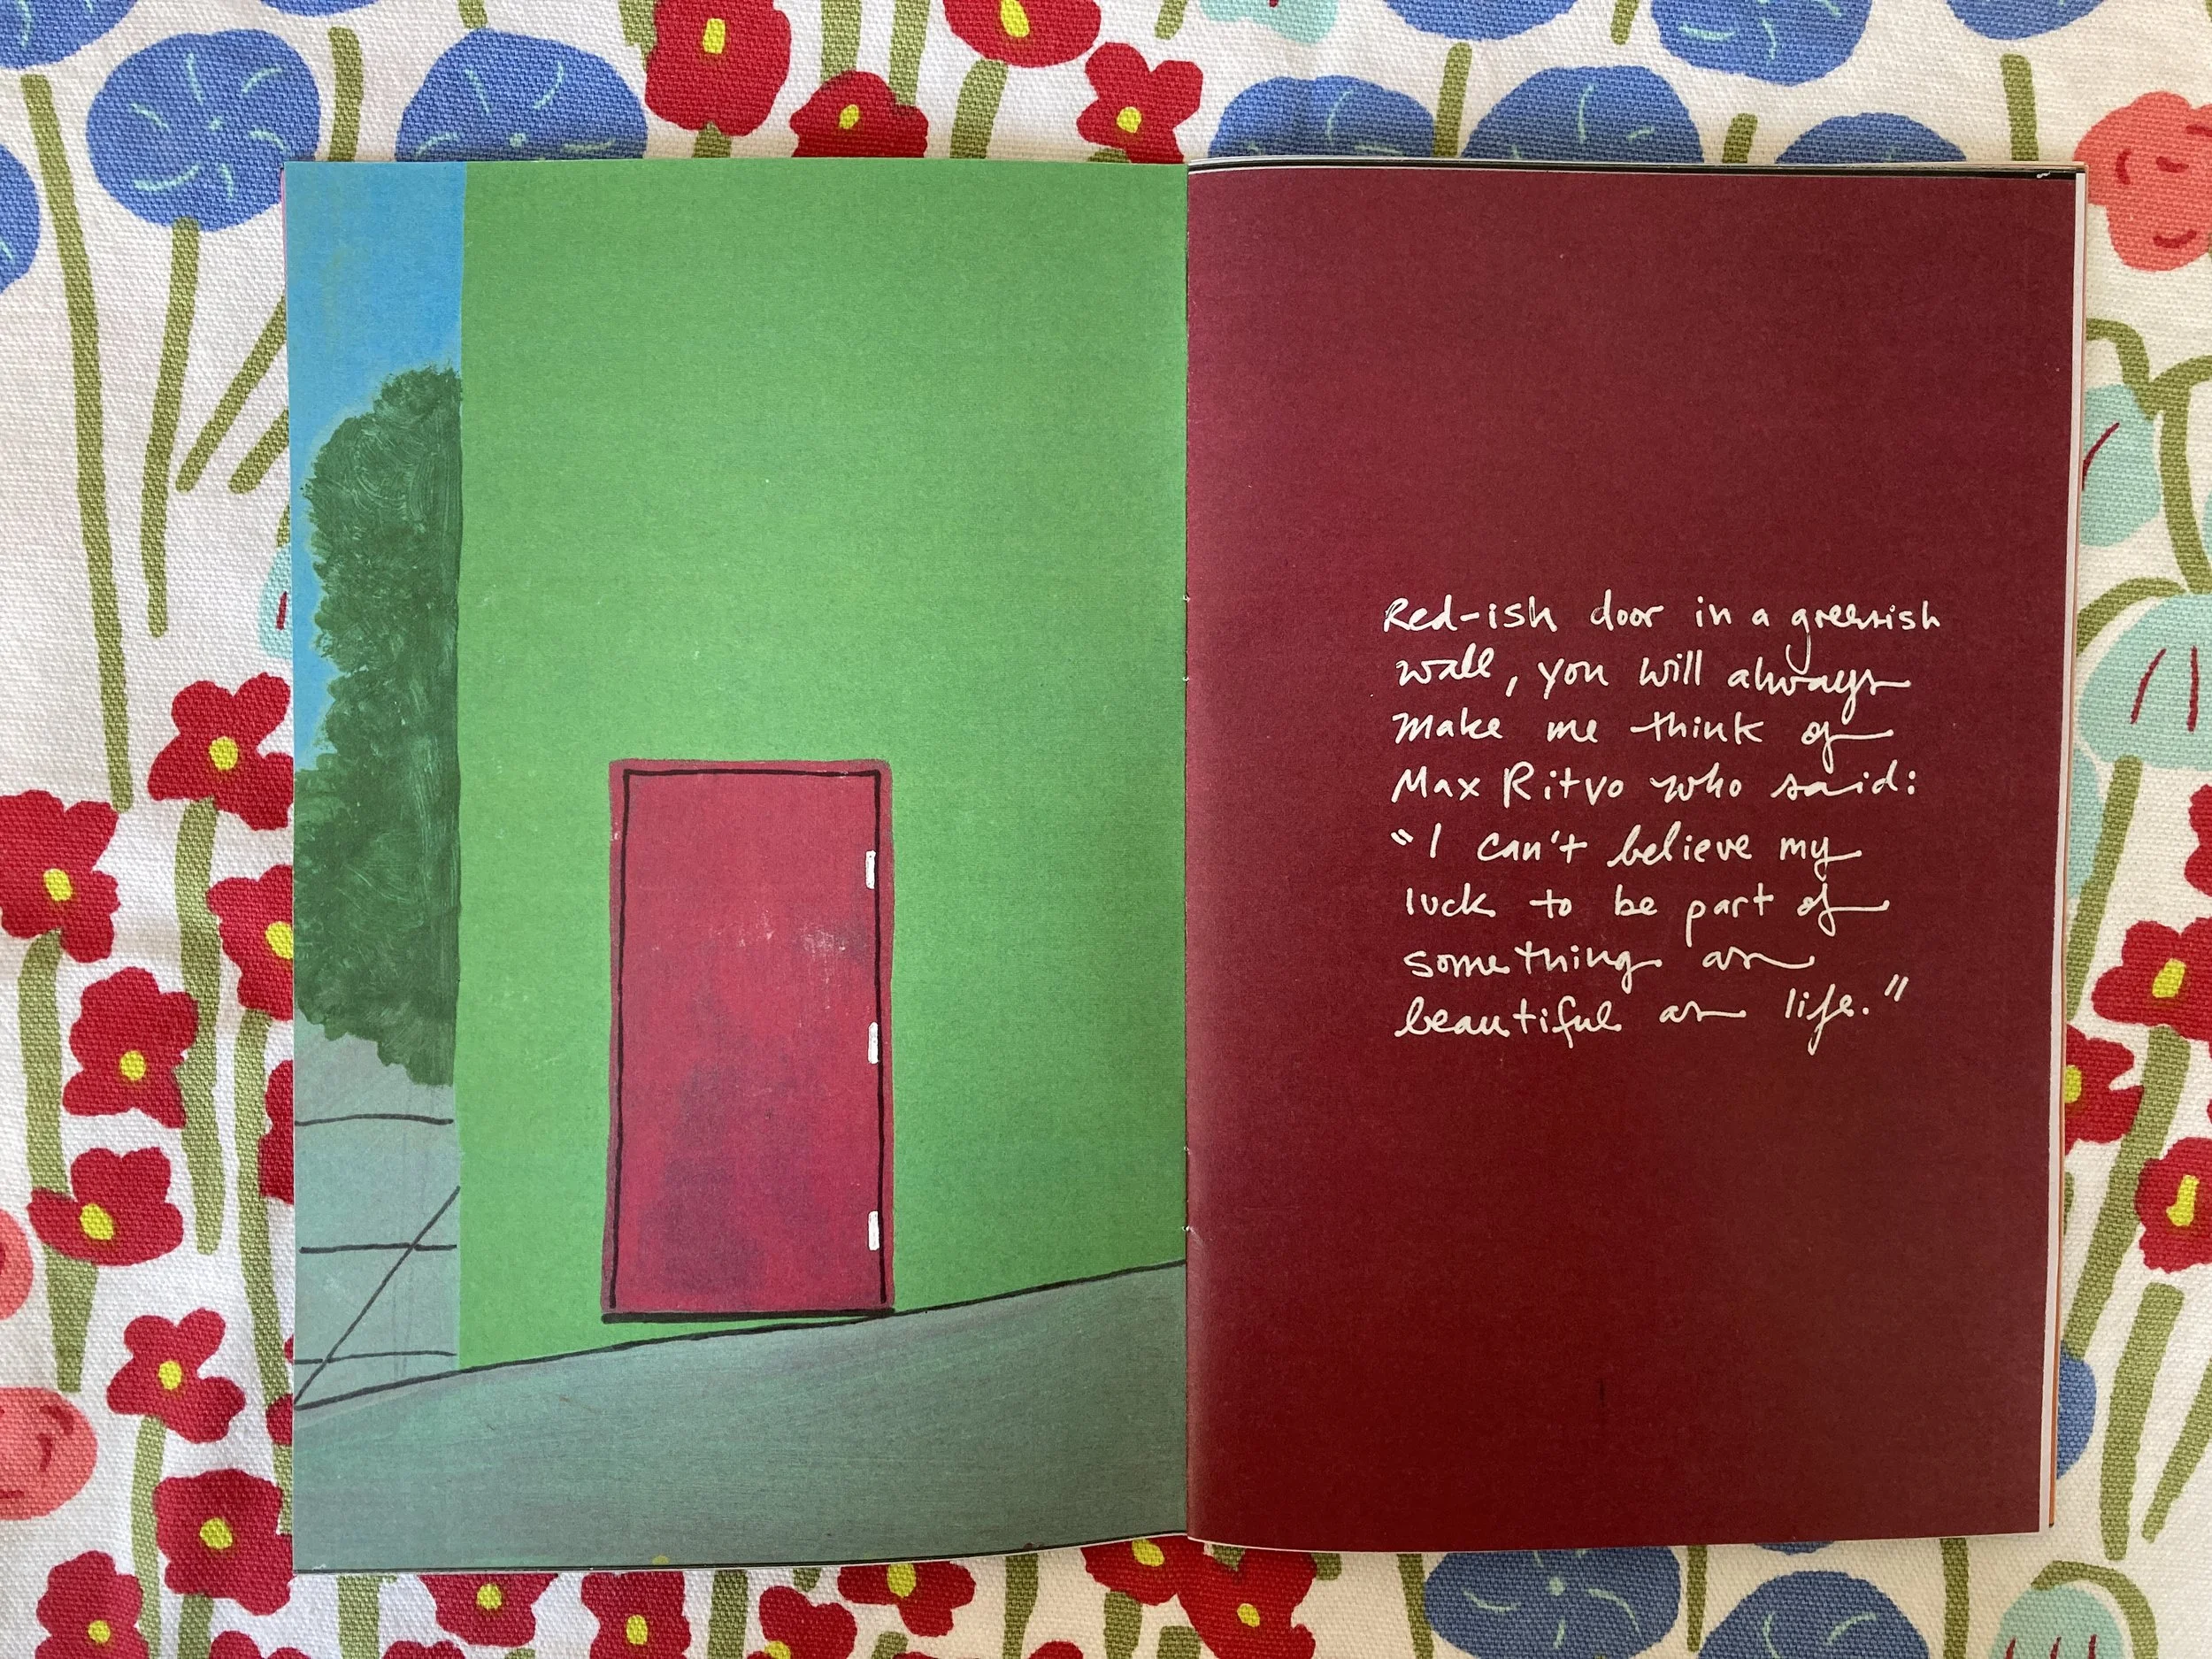 Red-ish door in a greenish
wall, you will always
make me think of
Max Ritvo who said:
"I can't believe my
luck to be part of
something as
beautiful as life."